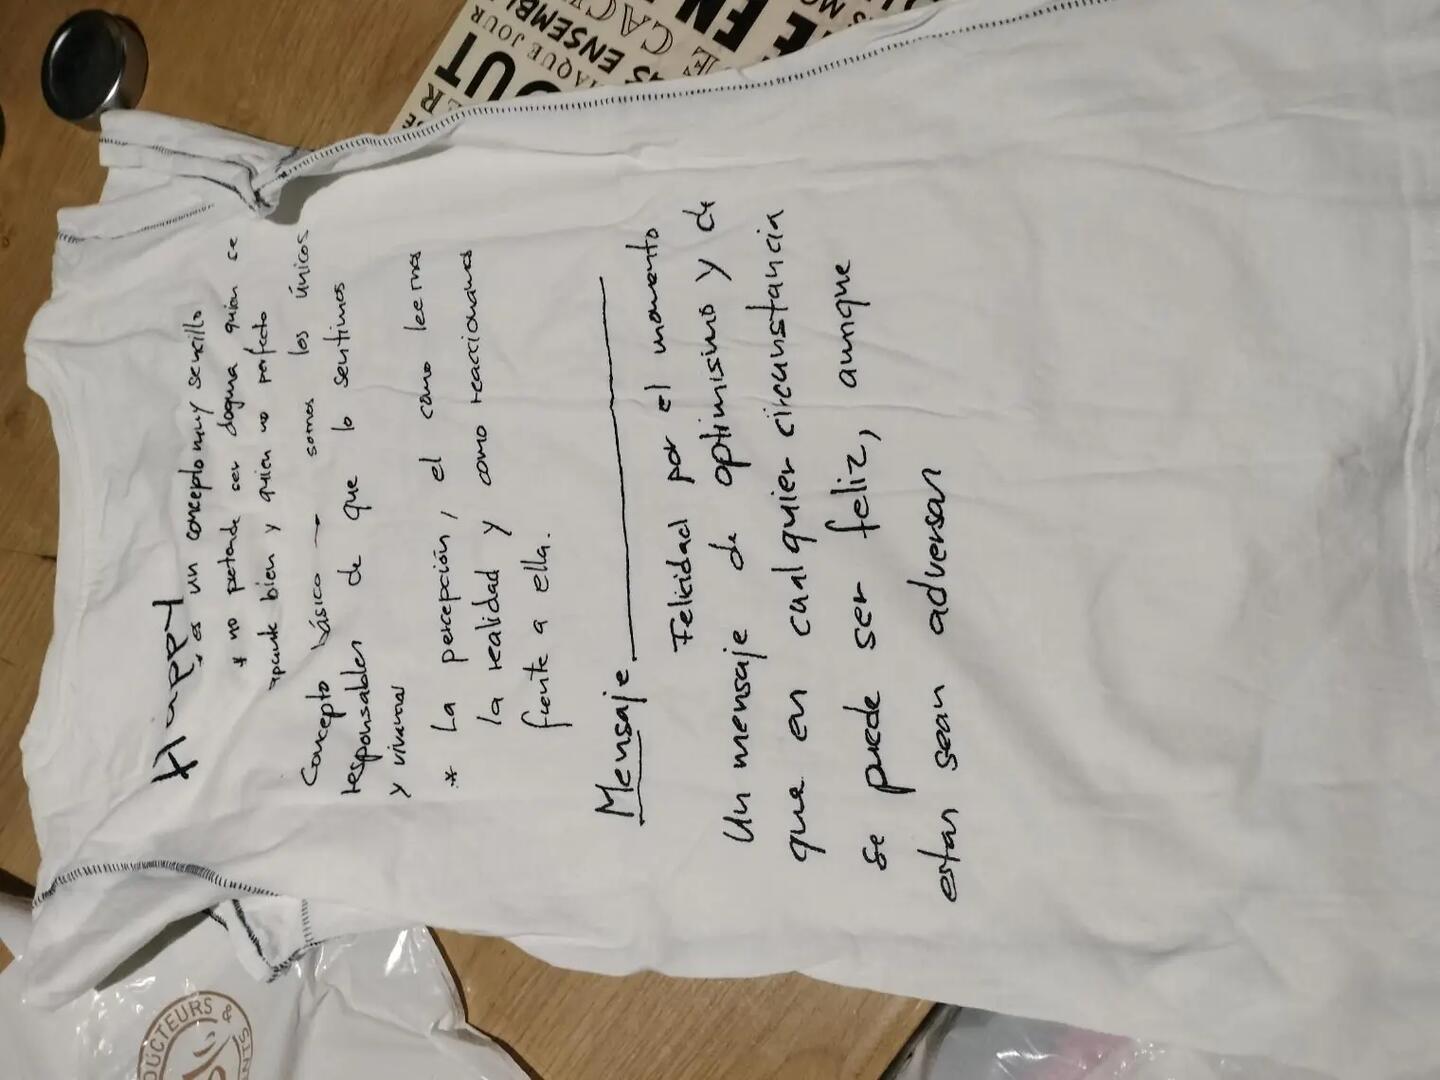 Happy
, es un concepto muy sencillo
* no pretende ser dogma quien se
apunte bien y quien no perfecto
Concepto básico → somos los únicos
responsables de que lo sentimos
y vivimos
* La percepción, el cómo leemos
la realidad y como reaccionamos
frente a ella.
Mensaje
Felicidad por el momento
Un mensaje de optimismo y de
que en cualquier circunstancia
se puede ser feliz, aunque
estas sean adversas
OUT
AQUE JOUR
ENSEMBLE
CAC
EN
DUCTEURS &